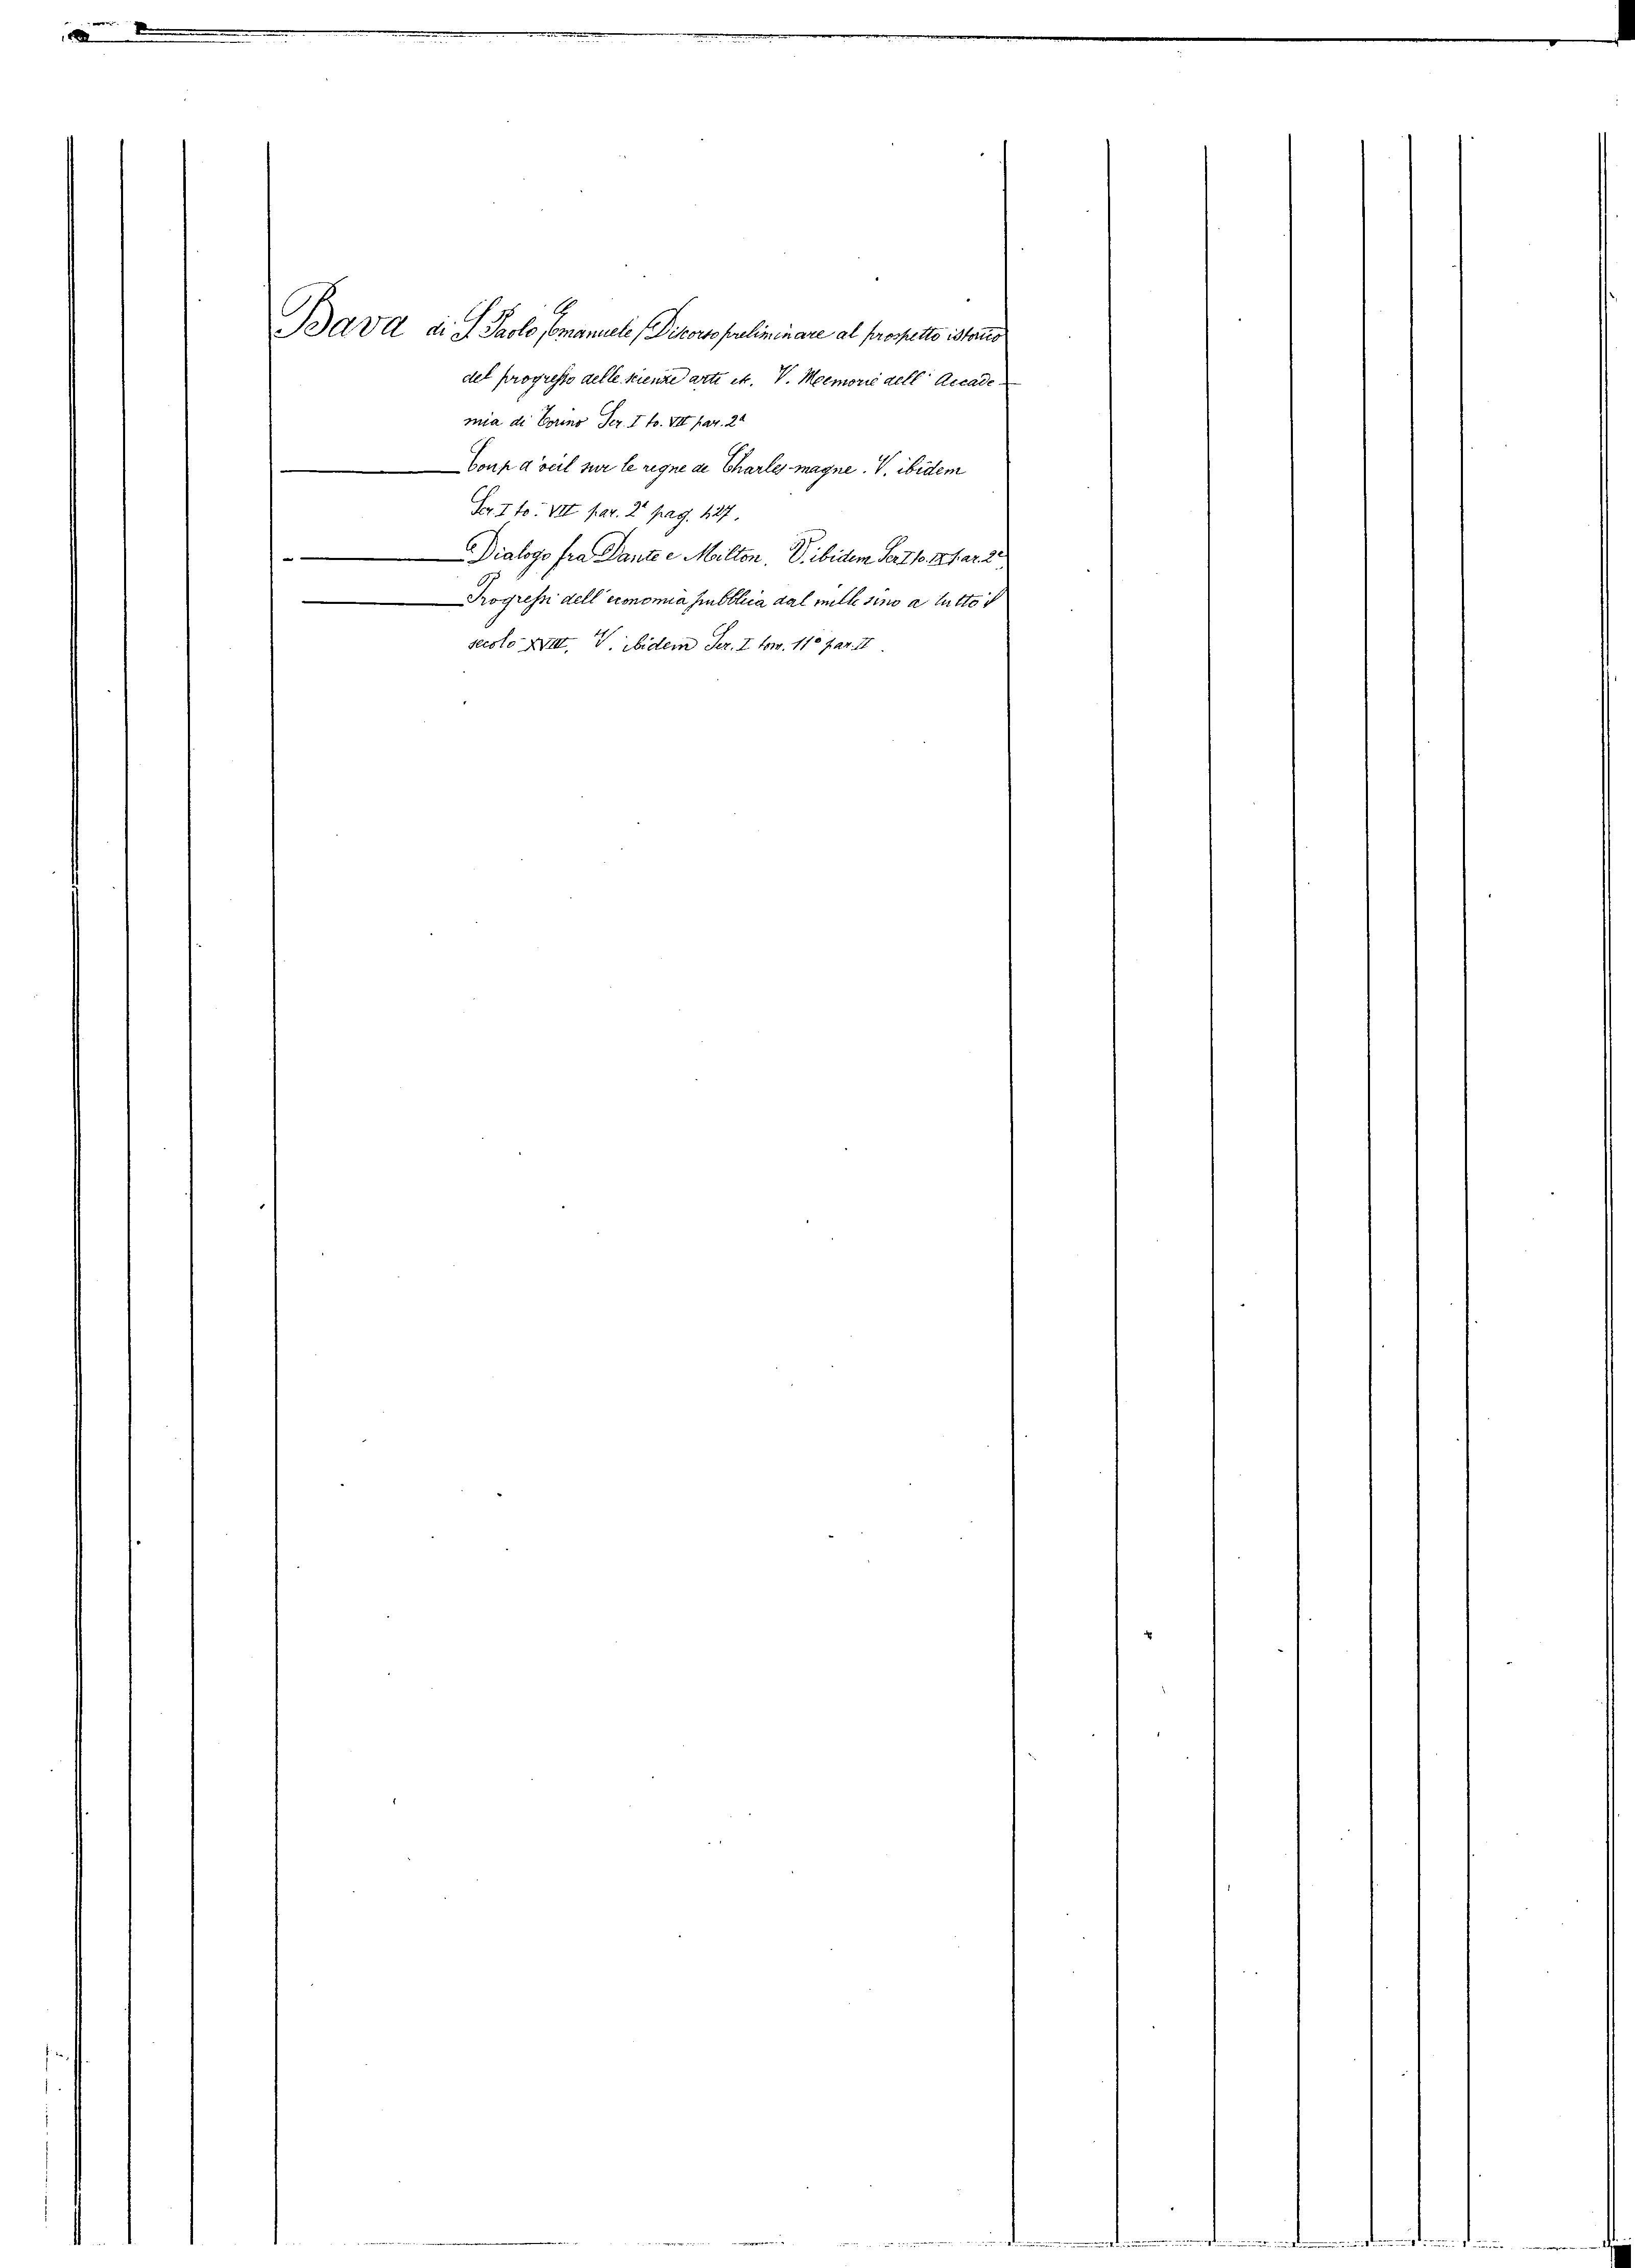 Bava di S. Paolo, Emanuele / Discorso preliminare al prospetto istorico
del progresso delle scienze arti ec. V. Memorie dell' Accade-
mia di Torino Ser. I to. VII par. 2a
Coup d'oeil sur le regne de Charles-magne. V. ibidem
Ser. I to. VII par. 2a pag. 427.
Dialogo fra Dante e Milton. V. ibidem Ser. I to. par. 2a
Progressi dell' economia pubblica dal mille sino a tutto il
secolo XVIII. V. ibidem Ser. I tom. 11º par. II.